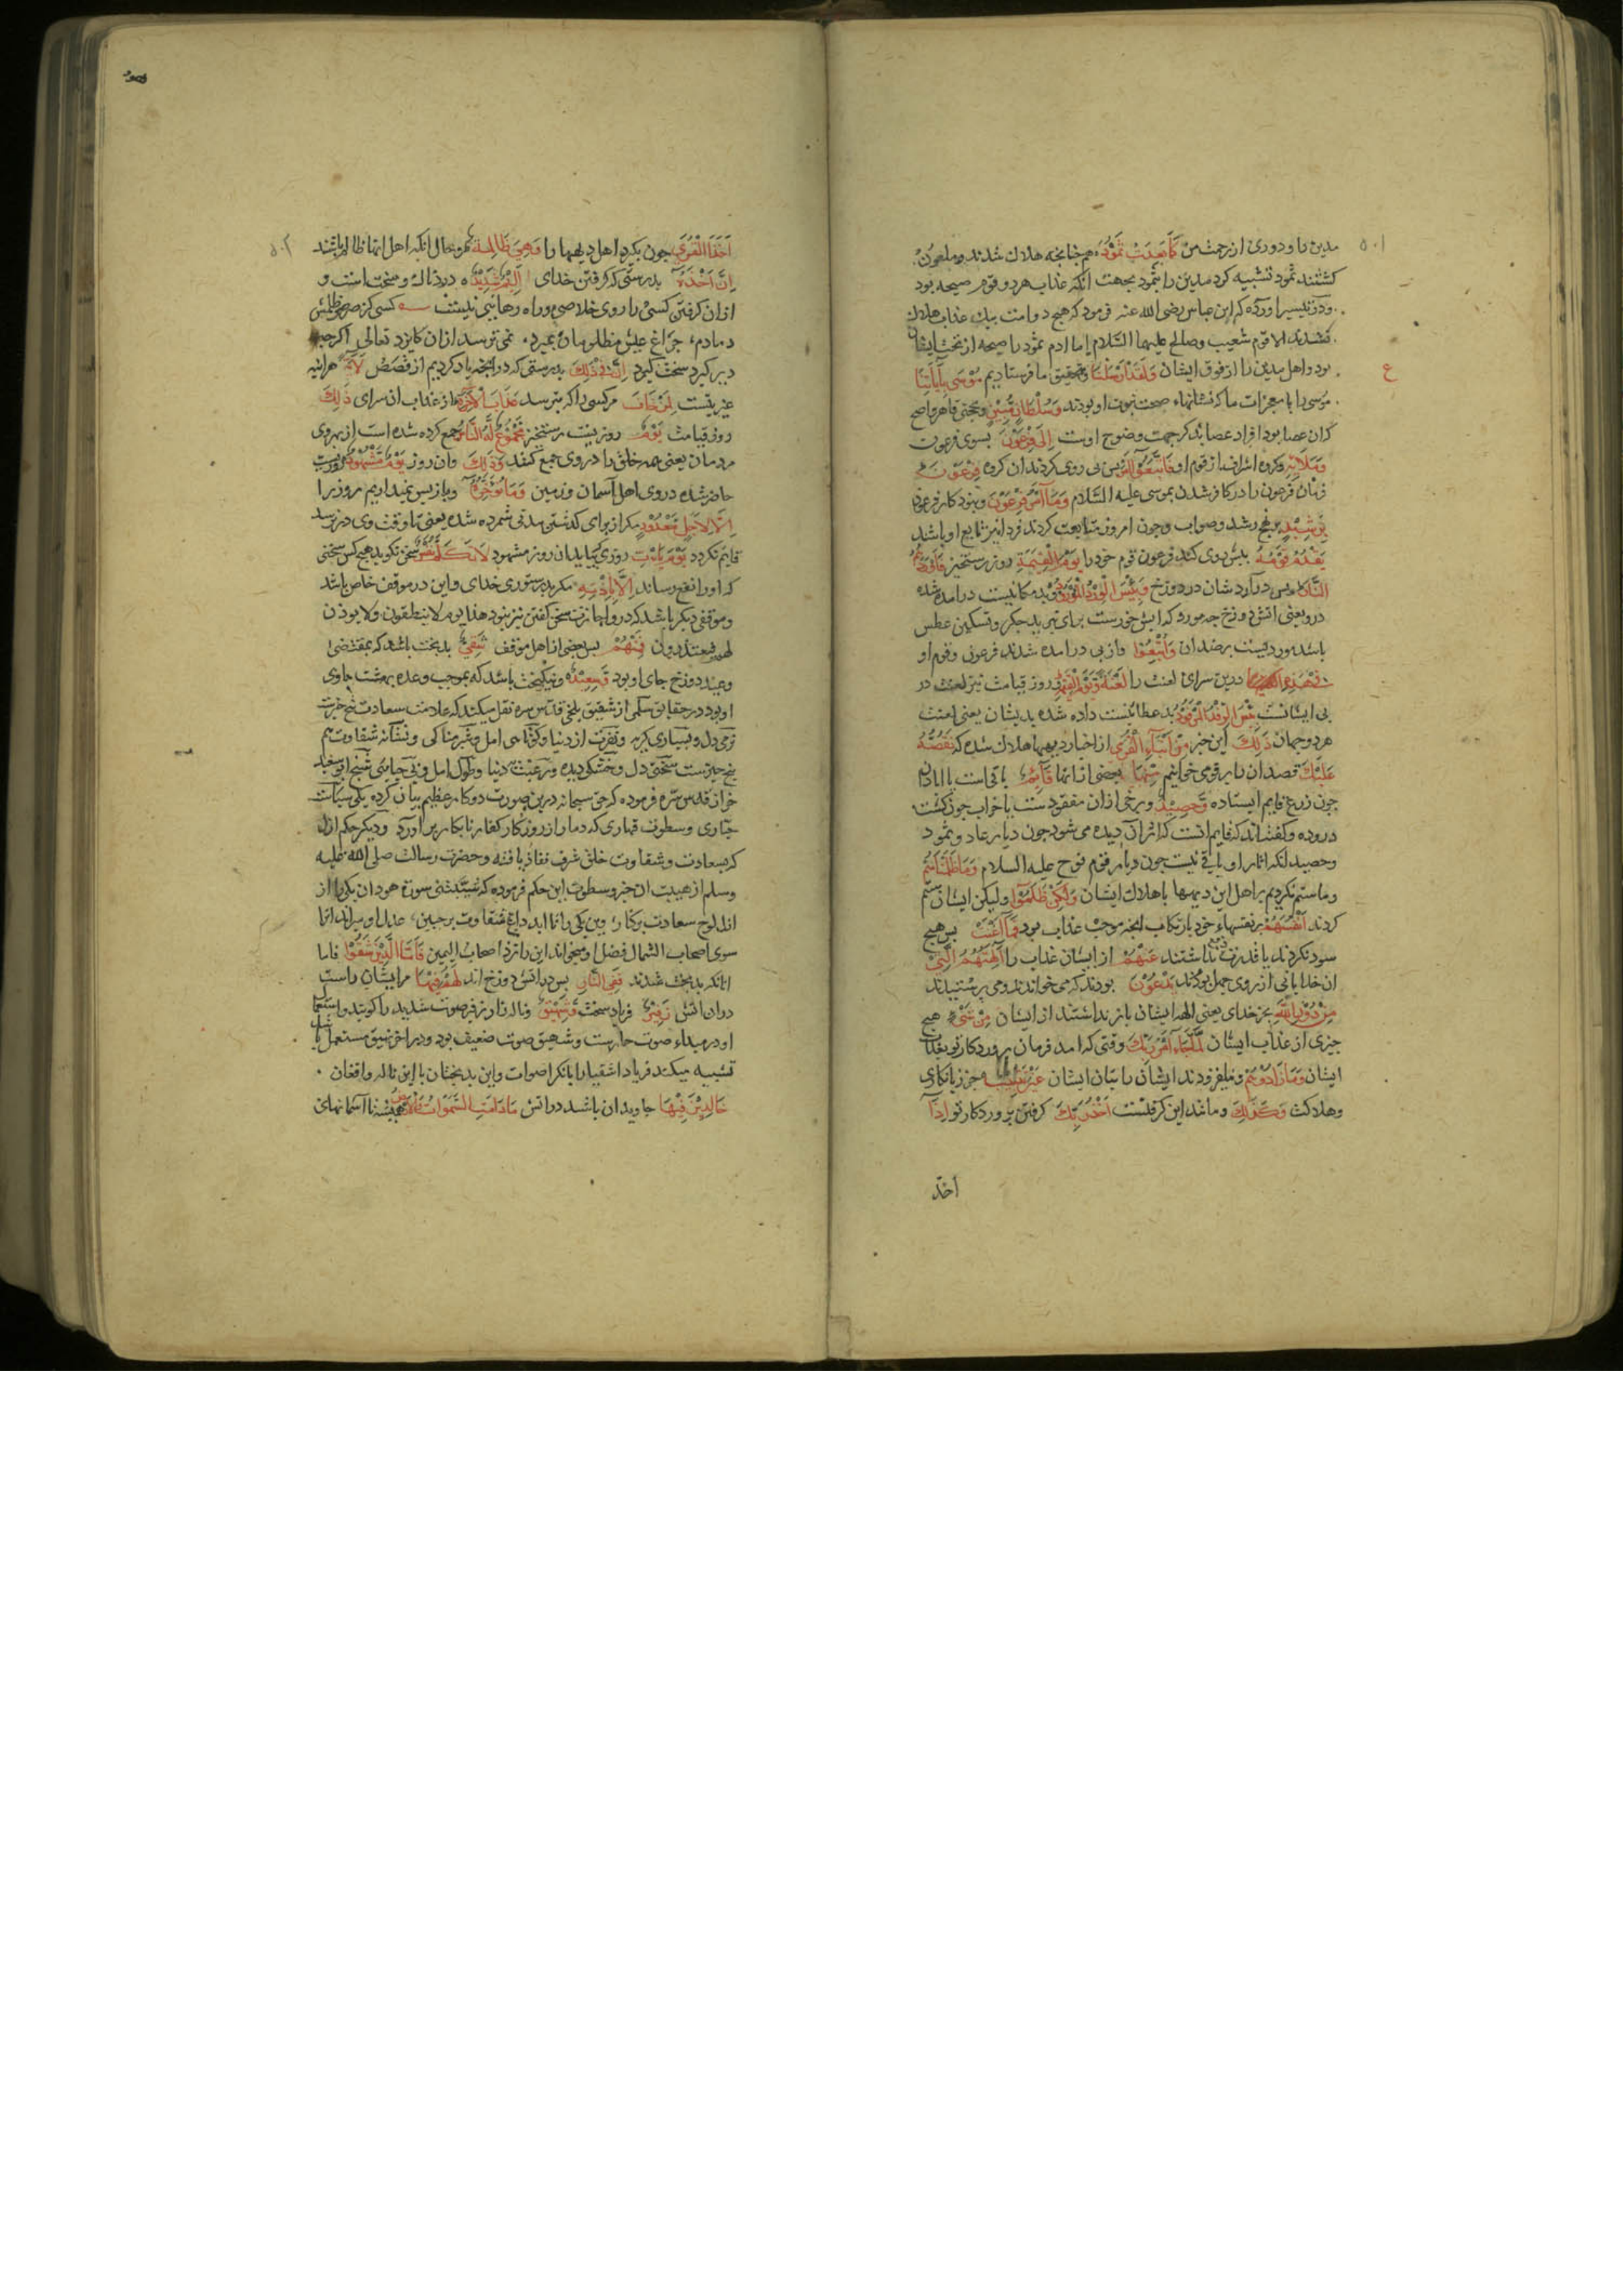 ۵۰۱
مدین را و دوری از رحمت من كَمَا بَعِدَتْ ثَمُودُ همچنانچه هلاك شدند و ملعون
كشتند ثمود تشبیه كرد مدین را بثمود بجهت انكه عذاب هر دو قوم صیحه بود
ودر تیسیر اورده كه ابن عباس رضی الله عنه فرمود كه هیچ دو امت بیك عذاب هلاك
نشدند الا قوم شعیب و صالح علیهما السلام اما ادم ثمود را صیحه از تحت ایشان
بود و اهل مدین را از فوق ایشان وَلَقَدْ اَرْسَلْنَا و بتحقیق ما فرستادیم مُوسَى بِآيَاتِنَا
موسی را با معجزات ما كه نشانهاء صحت نبوت او بودند وَسُلْطَانٍ مُبِينٍ و حجتی قاهر واضح
كه ان عصا بود افراد عصا بذكر جهت وضوح اوست اِلَى فِرْعَوْنَ بسوی فرعون
وَمَلَائِهِ و كروه اشراف از قوم او فَاتَّبَعُوْا اَمْرَ پس پی روی كردند ان كروه فِرْعَوْنَ
فرمان فرعون را در كافر شدن بموسی علیه السلام وَمَا اَمْرُ فِرْعَوْنَ و نبود كار فرعون
بِرَشِيْدٍ بر نهج رشد و صواب و چون امروز متابعت كردند فردا نیز تابع او باشند
يَقْدُمُ قَوْمَهُ پیش روی كند فرعون قوم خود را يَوْمَ الْقِيٰمَةِ روز رستخیز فَاَوْرَدَهُمُ
النَّارَ پس درآرد شان در دوزخ وَبِئْسَ الْوِرْدُ الْمَوْرُوْدُ و بد مكانیست درآمده شده
درو یعنی اتش دوزخ چه مورد كه ابش خورست برای تبرید جكر و تسكین عطش
باشد و وردیست بر ضد ان وَاُتْبِعُوْا و از پی درامده شدند فرعون و قوم او
فِيْ هٰذِهِ درین سرای لعنت را لَعْنَةً وَيَوْمَ الْقِيٰمَةِ و روز قیامت نیز لعنت در
پی ایشانست بِئْسَ الرِّفْدُ الْمَرْفُوْدُ بد عطائیست داده شده بدیشان یعنی لعنت
هر دو جهان ذٰلِكَ این خبر مِنْ اَنْبَاءِ الْقُرٰى از اخبار دیهها هلاك شده كه نَقُصُّهُ
عَلَيْكَ قصه ان را بر تو می خوانیم مِنْهَا بعضی از انها قَائِمٌ باقی است یا ابادان
چون زرع قایم ایستاده وَحَصِيْدٌ و برخی ازان مفقودست یا خراب چون كشت
دروده و كفته اند كه قایم انست كه اثر آن دیده می شود چون دیار عاد و ثمود
وحصید انكه اثار او باقی نیست چون دیار قوم نوح علیه السلام وَمَا ظَلَمْنَاهُمْ
وما ستم نكردیم بر اهل این دیهها باهلاك ایشان وَلٰكِنْ ظَلَمُوْا ولیكن ایشان ستم
كردند اَنْفُسَهُمْ بر نفسهاء خود بارتكاب انچه موجب عذاب بود فَمَا اَغْنَتْ پس هیچ
سود نكردند یا قدرت دفع نداشتند عَنْهُمْ از ایشان عذاب را اٰلِهَتُهُمُ الَّتِيْ
ان خدایانی از روی جهل بودند يَدْعُوْنَ بودند كه می خواندند و می پرستیدند
مِنْ دُوْنِ اللّٰهِ بجز خدای یعنی الهه ایشان باز نداشتند از ایشان مِنْ شَيْءٍ هیچ
چیزی از عذاب ایشان لَمَّا جَاءَ اَمْرُ رَبِّكَ وقتی كه امد فرمان پروردكار تو بعذاب
ایشان وَمَا زَادُوْهُمْ و نیفزودند ایشان را بتان ایشان غَيْرَ تَتْبِيْبٍ جز زیانكاری
و هلاكت وَكَذٰلِكَ و مانند این كرفتنست اَخْذُ رَبِّكَ كرفتن پروردكار تو اِذَا
اخذ
۵۰۲
اَخَذَ الْقُرٰى چون بكیرد اهل دیهها را وَهِيَ ظَالِمَةٌ و حال انكه اهل انها ظالم باشند
اِنَّ اَخْذَهُ بدرستی كه كرفتن خدای اَلِيْمٌ شَدِيْدٌ دردناك و سخت است و
ازان كرفتن كسی را روی خلاصی و راه رهایی نیست كسی كز صرصر ظلمش
دمادم چراغ عیش مظلومان بمیرد نمی ترسد ازان كایزد تعالی اكرچه
دیر كیرد سخت كیرد اِنَّ فِيْ ذٰلِكَ بدرستی كه در انچه یاد كردیم از قصص لَاٰيَةً هراینه
عبرتیست لِمَنْ خَافَ مر كسی را كه بترسد عَذَابَ الْاٰخِرَةِ از عذاب ان سرای ذٰلِكَ
روز قیامت يَوْمٌ روزیست رستخیز مَجْمُوْعٌ لَهُ النَّاسُ جمع كرده شده است از بهر وی
مردمان یعنی همه خلق را در وی جمع كنند وَذٰلِكَ وان روز يَوْمٌ مَشْهُوْدٌ روزیست
حاضر شده در وی اهل آسمان و زمین وَمَا نُؤَخِّرُهُ و باز پس نمیداریم روز را
اِلَّا لِاَجَلٍ مَعْدُوْدٍ مكر از برای كذشتن مدتی شمرده شده یعنی تا وقت وی در نرسد
قایم نكردد يَوْمَ يَاْتِ روزی كه بیاید ان روز مشهود لَا تَكَلَّمُ نَفْسٌ سخن نكوید هیچ كس سخنی
كه او را نفع رساند اِلَّا بِاِذْنِهِ مكر بدستوری خدای و این در موقف خاص باشد
و موقفی دیكر باشد كه درو اجازت سخن كفتن نیز نبود هذا یوم لا ینطقون ولا یوذن
لهم فیعتذرون فَمِنْهُمْ پس بعضی از اهل موقف شَقِيٌّ بدبخت باشد كه بمقتضی
وعید دوزخ جای او بود وَسَعِيْدٌ و نیكبخت باشد كه بموجب وعده بهشت جای
او بود در حقایق سلمی از شقیق بلخی قدس سره نقل میكند كه علامت سعادت پنج چیزست
نرمی دل و بسیاری كریه و نفرت از دنیا و كوتاهی امل و شرمناكی و نشانه شقاوت هم
پنج چیزست سختی دل و خشكی دیده و رغبت دنیا و طول امل و بی حیایی شیخ ابو سعید
خراز قدس سره فرموده كه حق سبحانه درین صورت دو كار عظیم بیان كرده یكی سیاست
جباری و سطوت قهاری كه دمار از روزكار كفار نابكار بر آورد و دیكر حكم ازل
كه بسعادت و شقاوت خلق شرف نفاذ یافته و حضرت رسالت صلی الله علیه
وسلم از هیبت ان خبر و سطوت این حكم فرموده كه شیبتنی سورة هود ان یكی را از
ازل لوح سعادت بركنار وین یكی را تا ابد داغ شقاوت بر جبین عدل او میراند انرا
سوی اصحاب الشمال فضل او میخواند این را نزد اصحاب الیمین فَاَمَّا الَّذِيْنَ شَقُوْا فاما
انانكه بدبخت شدند فَفِي النَّارِ پس در اتش دوزخ اند لَهُمْ فِيْهَا مر ایشان راست
دران اتش زَفِيْرٌ فریاد سخت وَشَهِيْقٌ و ناله زار زفیر صوت شدید را كویند و استعمال
او در مبداء صوت حمارست و شهیق صوت ضعیف بود و در اخر نهیق مستعمل باشد
تشبیه میكند فریاد اشقیا را بانكر اصوات و این بدبختان با این ناله و افغان
خَالِدِيْنَ فِيْهَا جاویدان باشند در اتش مَا دَامَتِ السَّمٰوَاتُ وَالْاَرْضُ همیشه تا آسمانهای